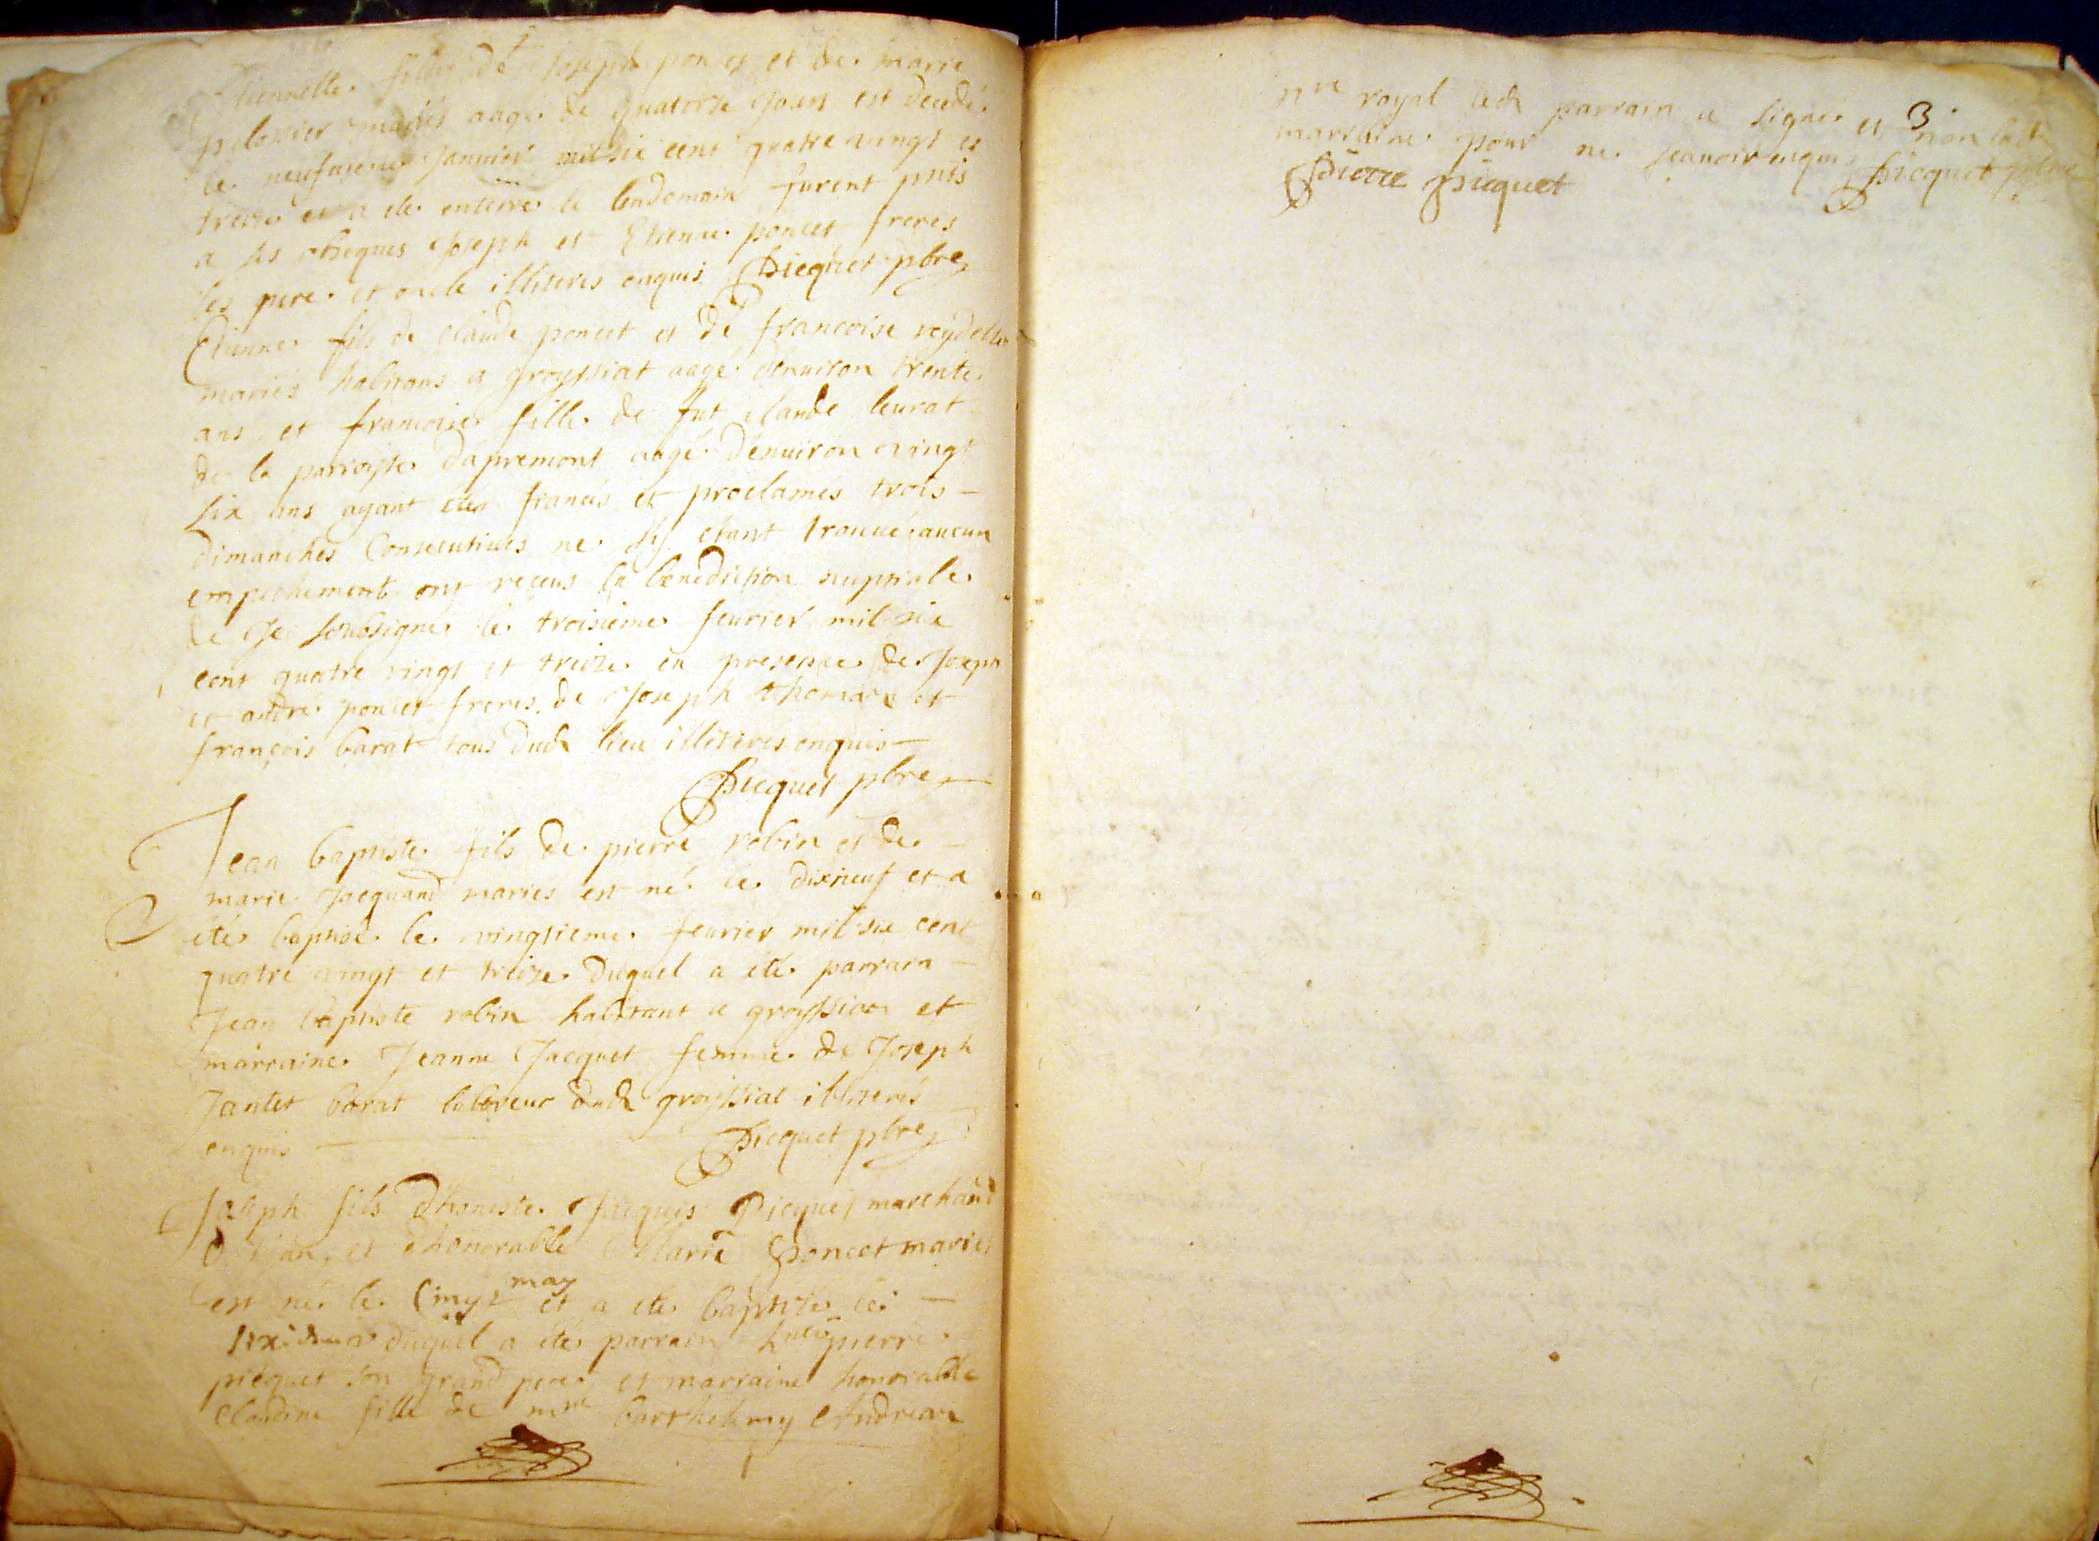 fille de Joseph poncet et de marie
pelossier mariés aagé de quatorze Jours est decedé
le neufvieme Janvier mil six cent quatre vingt et
treize et a ete enterré le lendemain furent pnts
a ses obseques Joseph et Etienne poncet freres
ses pere et oncle illiteres enquis Picquet pbre
Etienne fils de claude poncet et de francoise reydellet
mariés habitans a groyssiat aagé denuiron trente
ans et francoise fille de fut claude leurat
de la parroisse dapremont aagé denuiron vingt
six ans ayant etes fiancés et proclames trois
dimanches Consecutiues ne sy etant trouué aucun
empechement ont receus la benediction nuptiale
de Je soubsigné le troisieme feurier mil six
cent quatre vingt et treize en presence de Joseph
et andre poncet freres de Joseph thomas et
françois barat tous dud lieu illiteres enquis
Picquet pbre
Jean baptiste fils de pierre robin et de
marie Jacquand maries est né le dixneuf et a
etés baptisé le vingtieme feurier mil six cent
quatre vingt et treize duquel a eté parrain
Jean baptiste robin habitant a groyssiat et
marraine Jeanne Jacquet femme de Joseph
Jantet barat laboreur dud groyssiat illiterés
enquis Picquet pbre
Joseph fils dhoneste Jacques Picquet marchand
et dhonorable Marie Poncet mariés
est né le Cinq may et a eté baptizé
duquel a etés parrain pierre
picquet son grand pere et marraine honorable
Claudine fille de barthelemy Andrean
3
nre royal led parrain a signé et non lad
marraine pour ne scauoir enquis Picquet pbre
Pierre Picquet